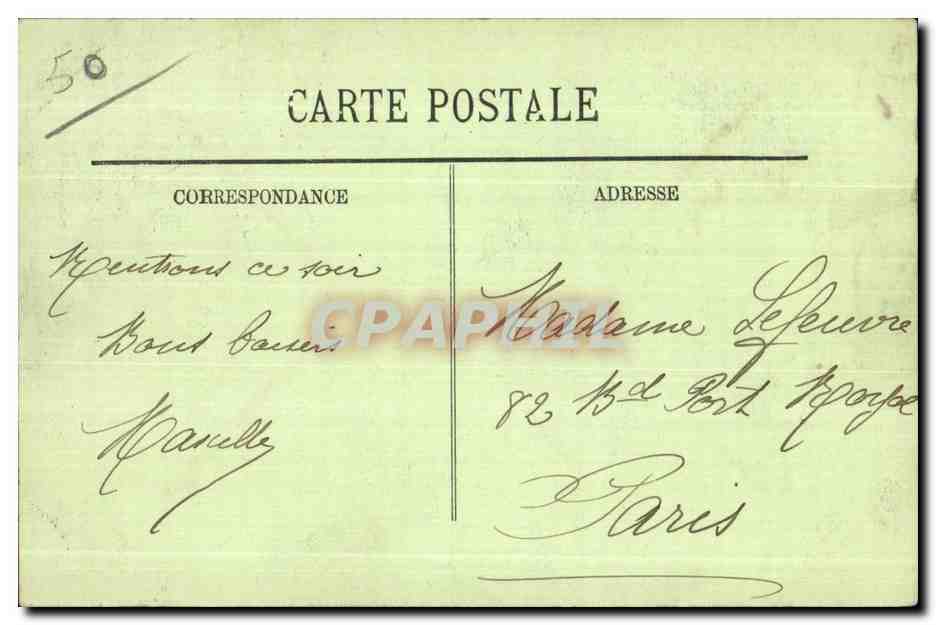 50
CARTE POSTALE
CORRESPONDANCE
Rentrons ce soir
Bons baisers
ADRESSE
Madame Lefeuvre
82 Bd Port Royal
Paris
CPAPHIL